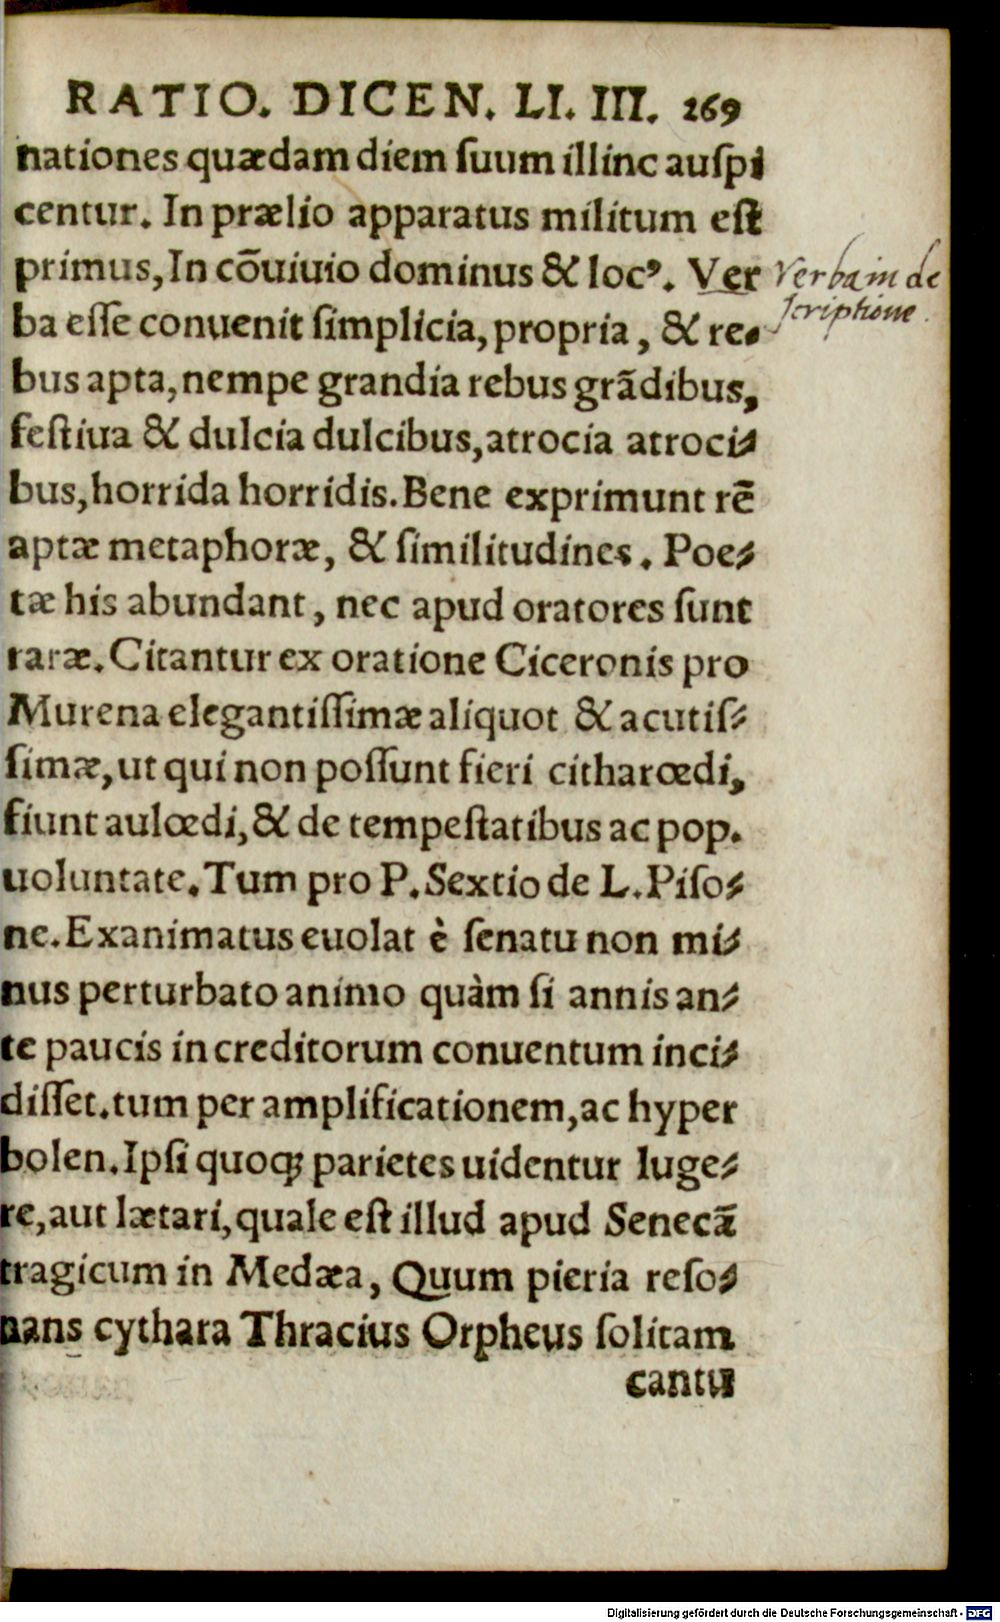 RATIO. DICEN. LI. III. 269
nationes quædam diem ſuum illinc auſpi
centur. In prælio apparatus militum eſt
primus, In cōuiuio dominus & locꝰ. Ver
Verba in de
ſcriptione.
ba eſſe conuenit ſimplicia, propria, & re-
bus apta, nempe grandia rebus grādibus,
feſtiua & dulcia dulcibus, atrocia atroci-
bus, horrida horridis. Bene exprimunt rē
aptæ metaphoræ, & ſimilitudines. Poe-
tæ his abundant, nec apud oratores ſunt
raræ. Citantur ex oratione Ciceronis pro
Murena elegantiſſimæ aliquot & acutiſ-
ſimæ, ut qui non poſſunt fieri citharœdi,
fiunt aulœdi, & de tempeſtatibus ac pop.
uoluntate. Tum pro P. Sextio de L. Piſo-
ne. Exanimatus euolat è ſenatu non mi-
nus perturbato animo quàm ſi annis an-
te paucis in creditorum conuentum inci-
diſſet. tum per amplificationem, ac hyper
bolen. Ipſi quoqꝫ parietes uidentur luge-
re, aut lætari, quale eſt illud apud Senecā
tragicum in Medæa, Quum pieria reſo-
nans cythara Thracius Orpheus ſolitam
cantu
Digitalisierung gefördert durch die Deutsche Forschungsgemeinschaft - DFG